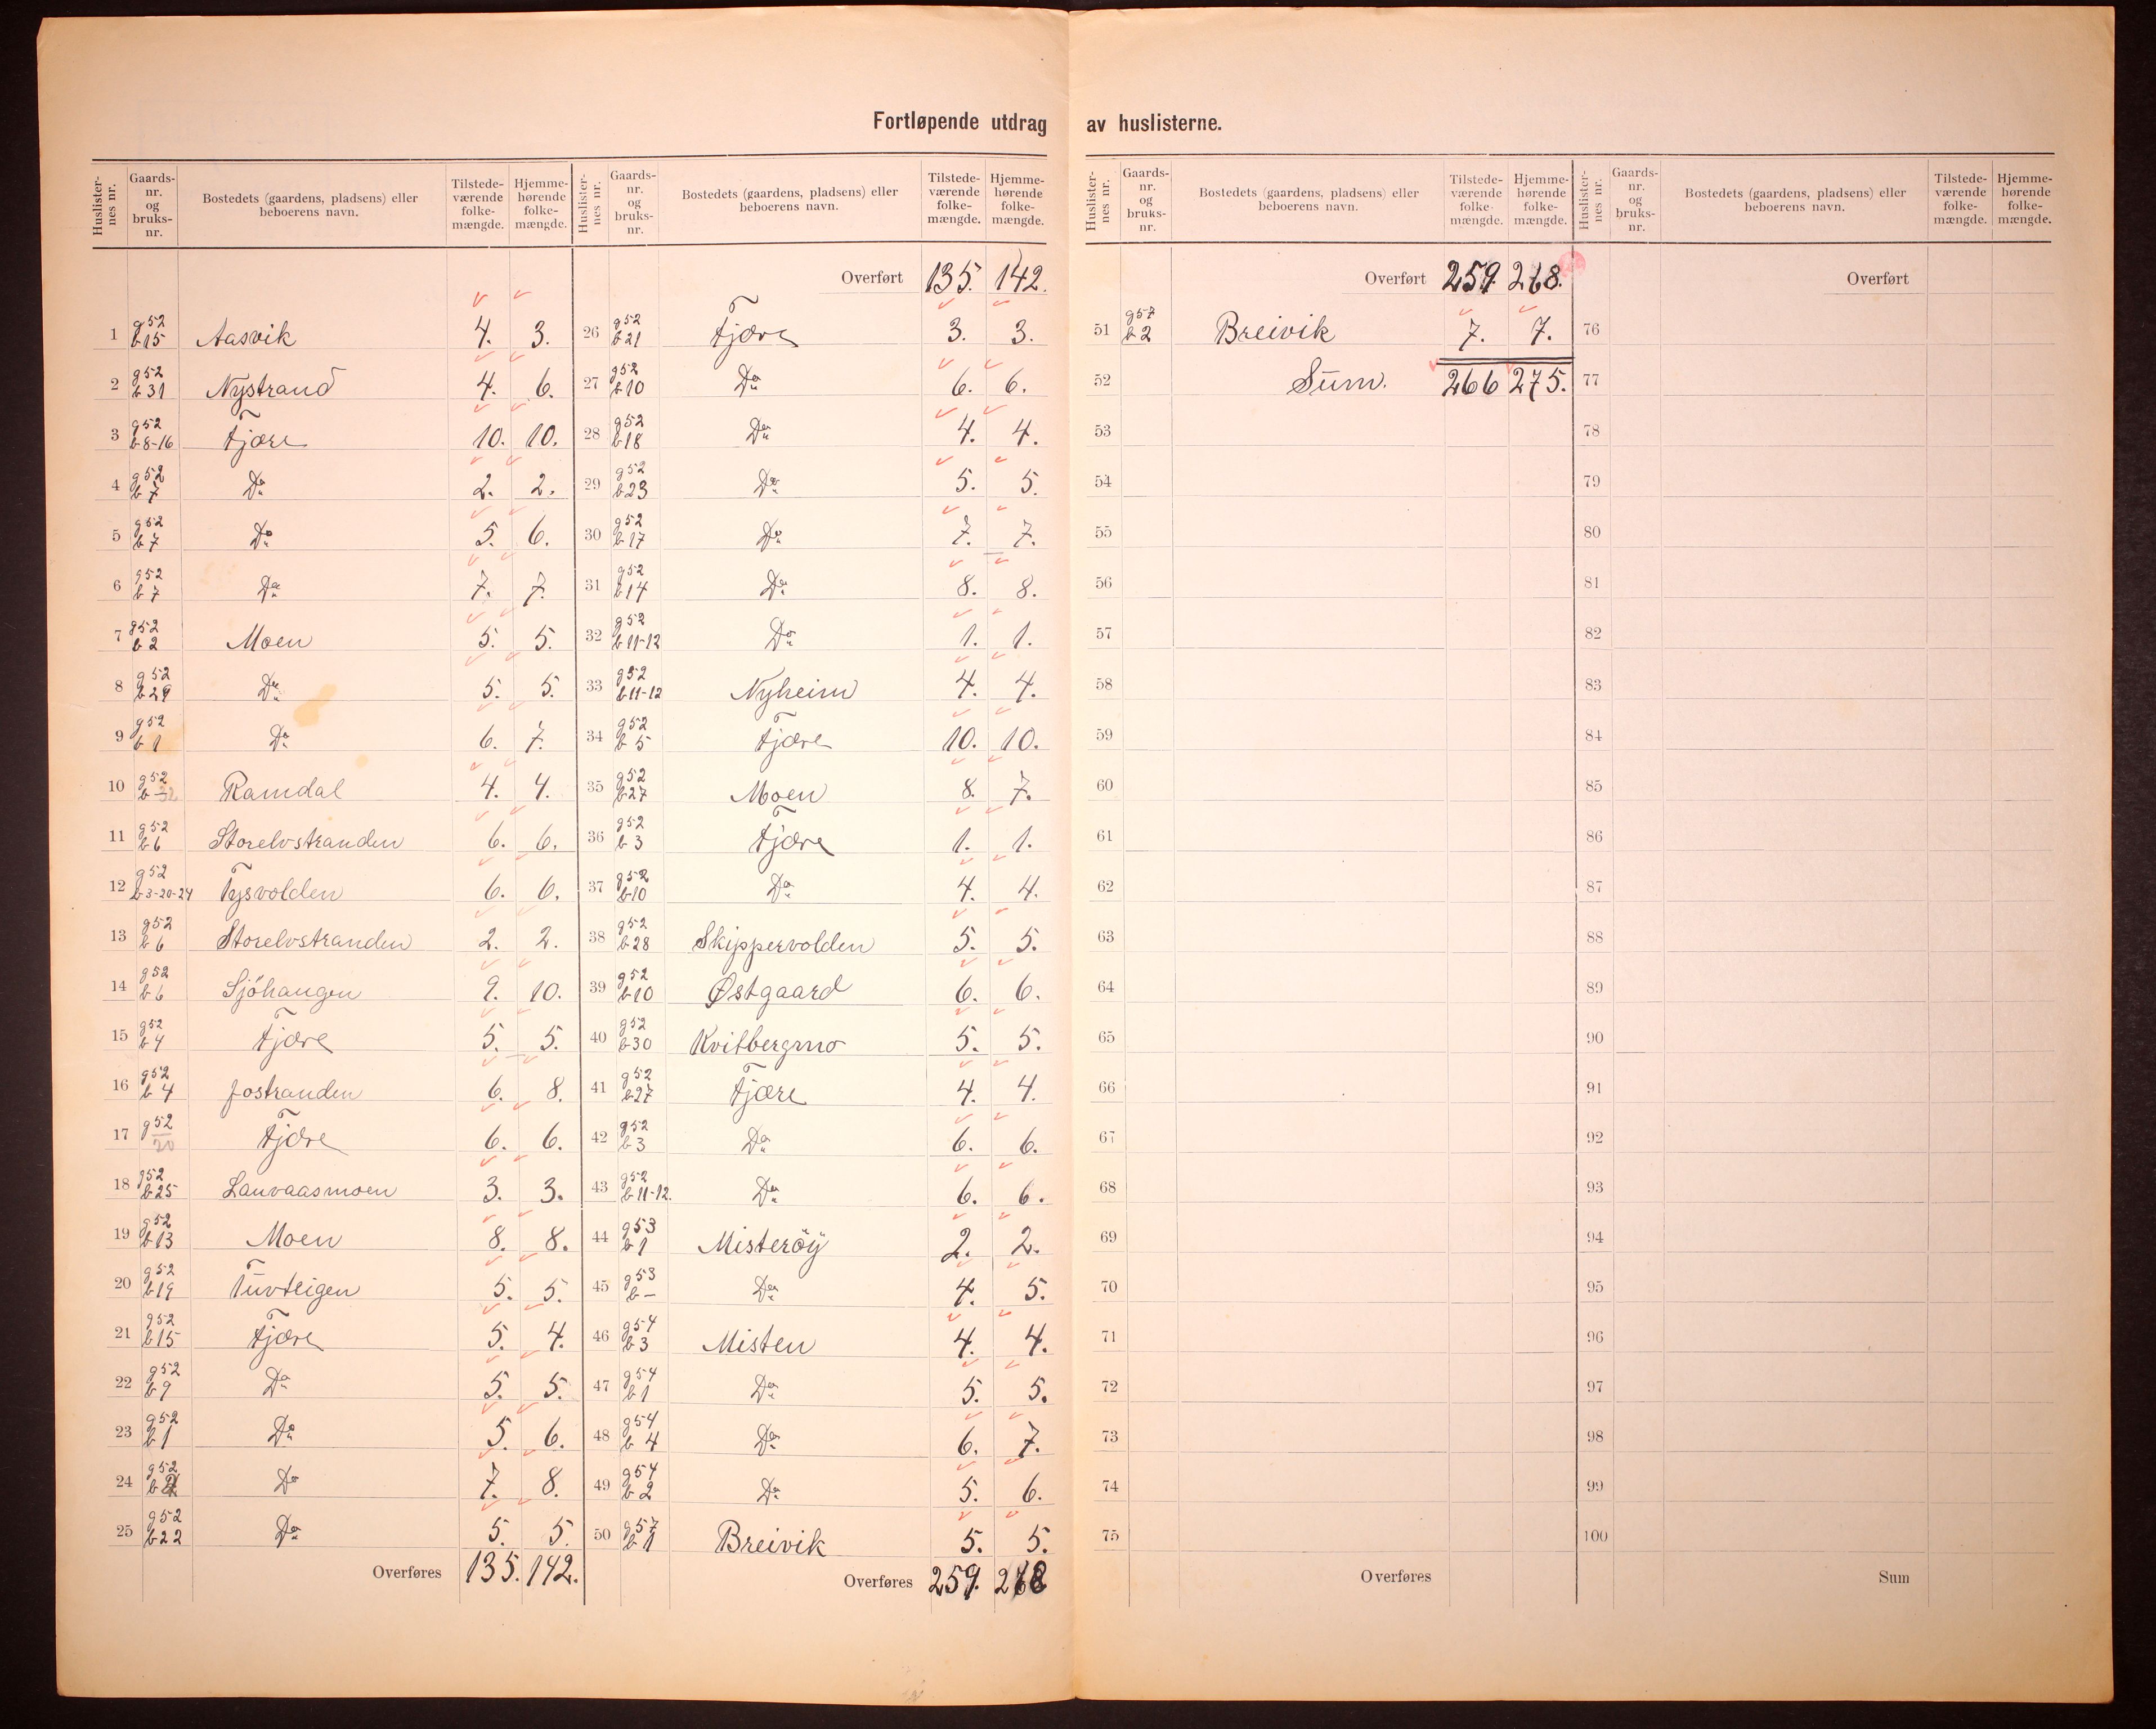 Fortløpende utdrag av huslisternе.
Huslister-nes nr. Gaards-nr. og bruks-nr. Bostedets (gaardens, pladsens) eller beboerens navn. Tilstede-værende folke-mængde. Hjemme-hørende folke-mængde.
1 g52 b15 Aasvik 4. 3.
2 g52 b31 Nystrand 4. 6.
3 g52 b8-16 Fjære 10. 10.
4 g52 b7 Do 2. 2.
5 g52 b7 Do 5. 6.
6 g52 b7 Do 7. 7.
7 g52 b2 Moen 5. 5.
8 g52 b29 Do 5. 5.
9 g52 b1 Do 6. 7.
10 g52 b- 32 Ramdal 4. 4.
11 g52 b6 Storelvstranden 6. 6.
12 g52 b3-20-24 Tysvolden 6. 6.
13 g52 b6 Storelvstranden 2. 2.
14 g52 b6 Sjöhaugen 9. 10.
15 g52 b4 Fjære 5. 5.
16 g52 b4 Jostranden 6. 8.
17 g52 20 Fjære 6. 6.
18 g52 b25 Lauvaasmoen 3. 3.
19 g52 b13 Moen 8. 8.
20 g52 b19 Tuvteigen 5. 5.
21 g52 b15 Fjære 5. 4.
22 g52 b9 Do 5. 5.
23 g52 b1 Do 5. 6.
24 g52 Do 7. 8.
25 g52 b22 Do 5. 5.
Overføres 135. 142.
Huslister-nes nr. Gaards-nr. og bruks-nr. Bostedets (gaardens, pladsens) eller beboerens navn. Tilstede-værende folke-mængde. Hjemme-hørende folke-mængde.
Overført 135. 142.
26 g52 b21 Fjære 3. 3.
27 g52 b10 Do 6. 6.
28 g52 b18 Do 4. 4.
29 g52 b23 Do 5. 5.
30 g52 b17 Do 7. 7.
31 g52 b14 Do 8. 8.
32 g52 b11-12 Do 1. 1.
33 g52 b11-12 Nyheim 4. 4.
34 g52 b5 Fjære 10. 10.
35 g52 b27 Moen 8. 7.
36 g52 b3 Fjære 1. 1.
37 g52 b10 Do 4. 4.
38 g52 b28 Skippervolden 5. 5.
39 g52 b10 Østgaard 6. 6.
40 g52 b30 Kvitbergmo 5. 5.
41 g52 b27 Fjære 4. 4.
42 g52 b3 Do 6. 6.
43 g52 b11-12. Do 6. 6.
44 g53 b1 Misteröy 2. 2.
45 g53 b- Do 4. 5.
46 g54 b3 Misten 4. 4.
47 g54 b1 Do 5. 5.
48 g54 b4 Do 6. 7.
49 g54 b2 Do 5. 6.
50 g57 b1 Breivik 5. 5.
Overføres 259. 268
Huslister-nes nr. Gaards-nr. og bruks-nr. Bostedets (gaardens, pladsens) eller beboerens navn. Tilstede-værende folke-mængde. Hjemme-hørende folke-mængde.
Overført 259. 268.
51 g57 b2 Breivik 7. 7.
52 Sum. 266 275.
53
54
55
56
57
58
59
60
61
62
63
64
65
66
67
68
69
70
71
72
73
74
75
Overføres
Huslister-nes nr. Gaards-nr. og bruks-nr. Bostedets (gaardens, pladsens) eller beboerens navn. Tilstede-værende folke-mængde. Hjemme-hørende folke-mængde.
Overført
76
77
78
79
80
81
82
83
84
85
86
87
88
89
90
91
92
93
94
95
96
97
98
99
100
Sum